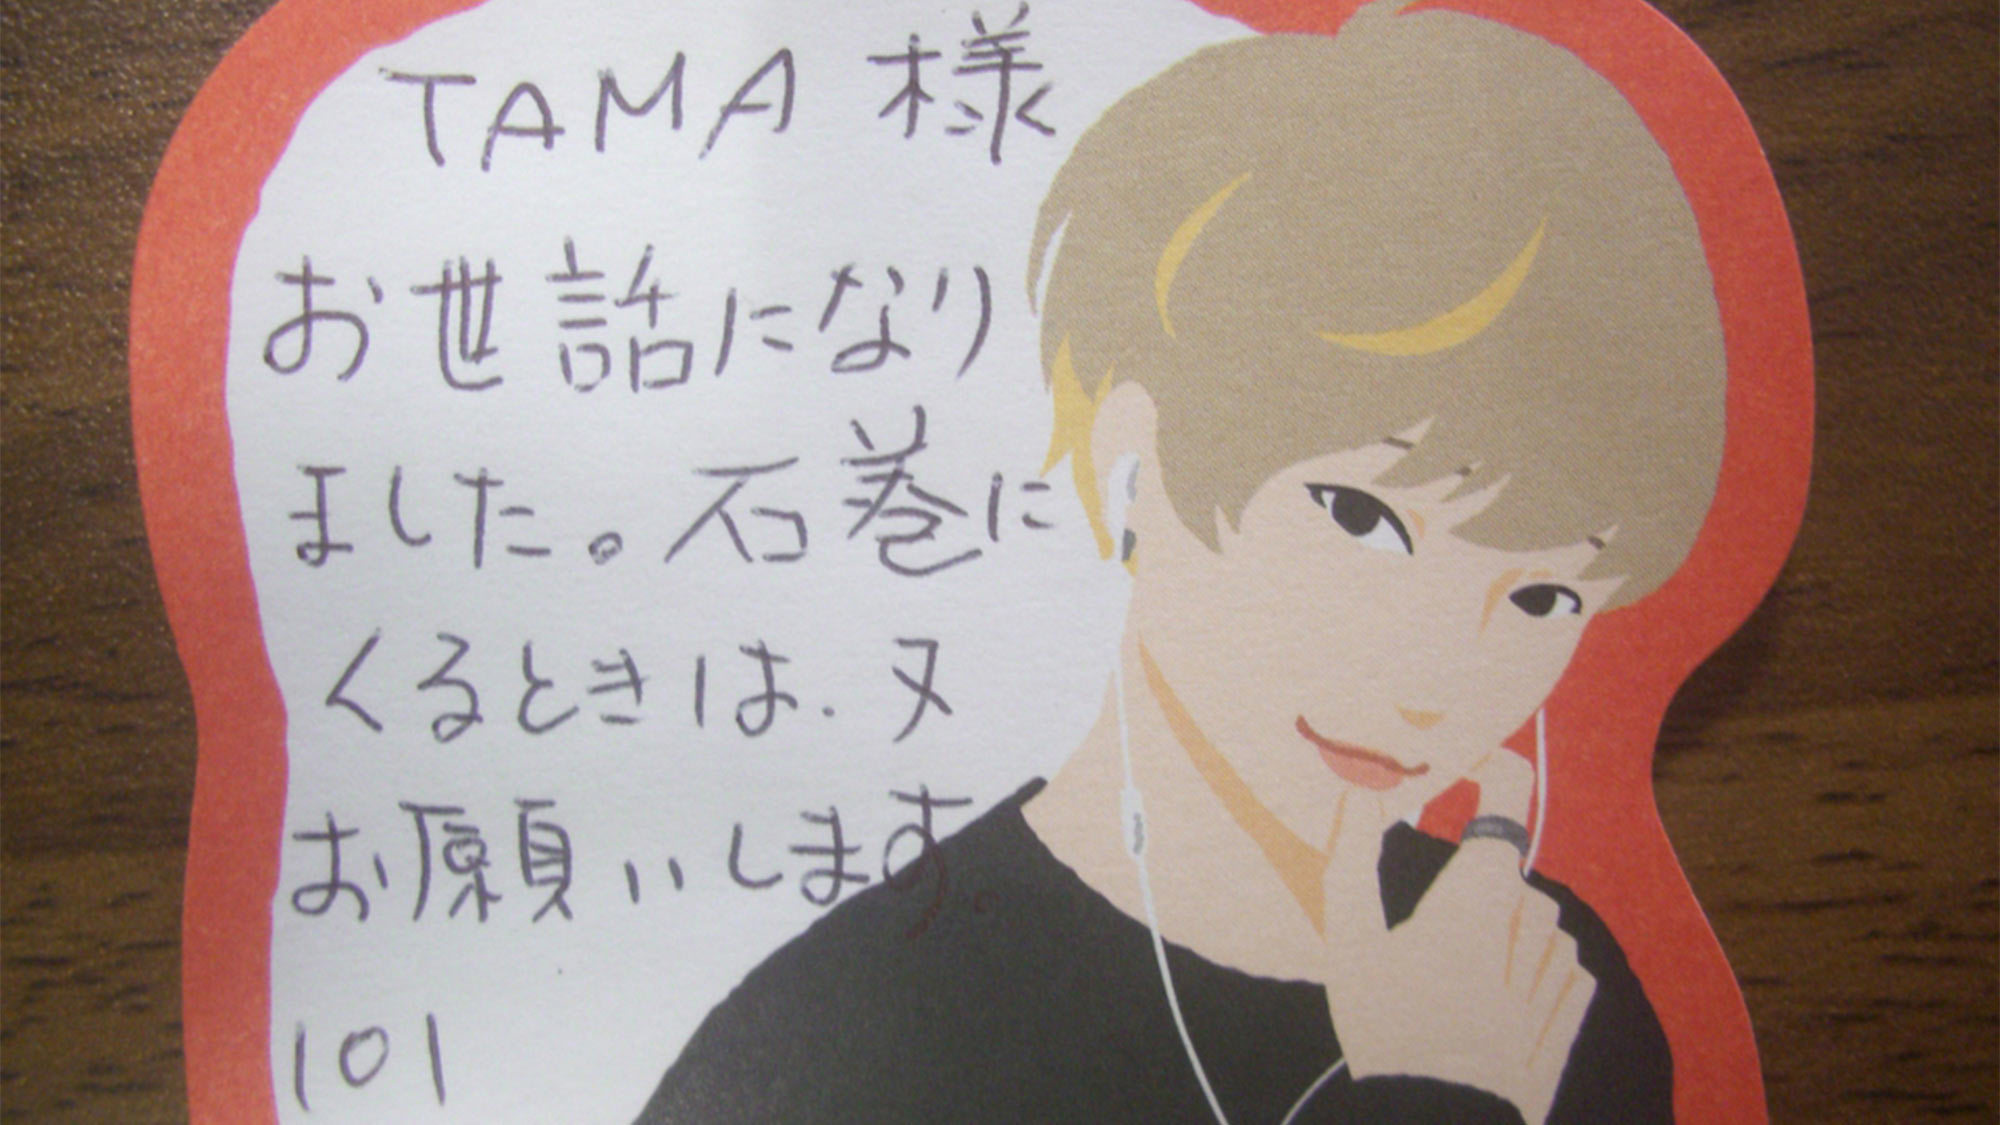 TAMA 様
お世話になり
ました。石巻に
くるときは.又
お願いします。
101